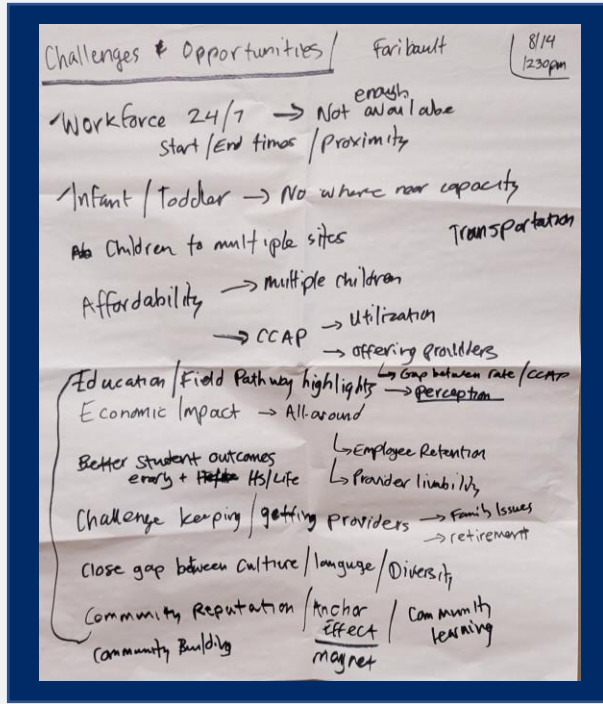 Challenges & Opportunities / Faribault 8/14
1230pm
Workforce 24/7 → Not enough availabe
Start/End times / Proximity
Infant / Toddler → No where near capacity
Children to multiple sites Transportation
Affordability → multiple children
→ CCAP → Utilization
→ offering providers
↳ Gap between rate/CCAP
Education/Field Pathway highlights → perception
Economic Impact → All-around
↳ Employee Retention
↳ Provider livibility
Better student outcomes
elemary + HS/Life
Challenge keeping/getting providers → Family Issues
→ retirement
Close gap between culture/languge/Diversity
Community Reputation / Anchor Effect / Community learning
magnet
Community Building